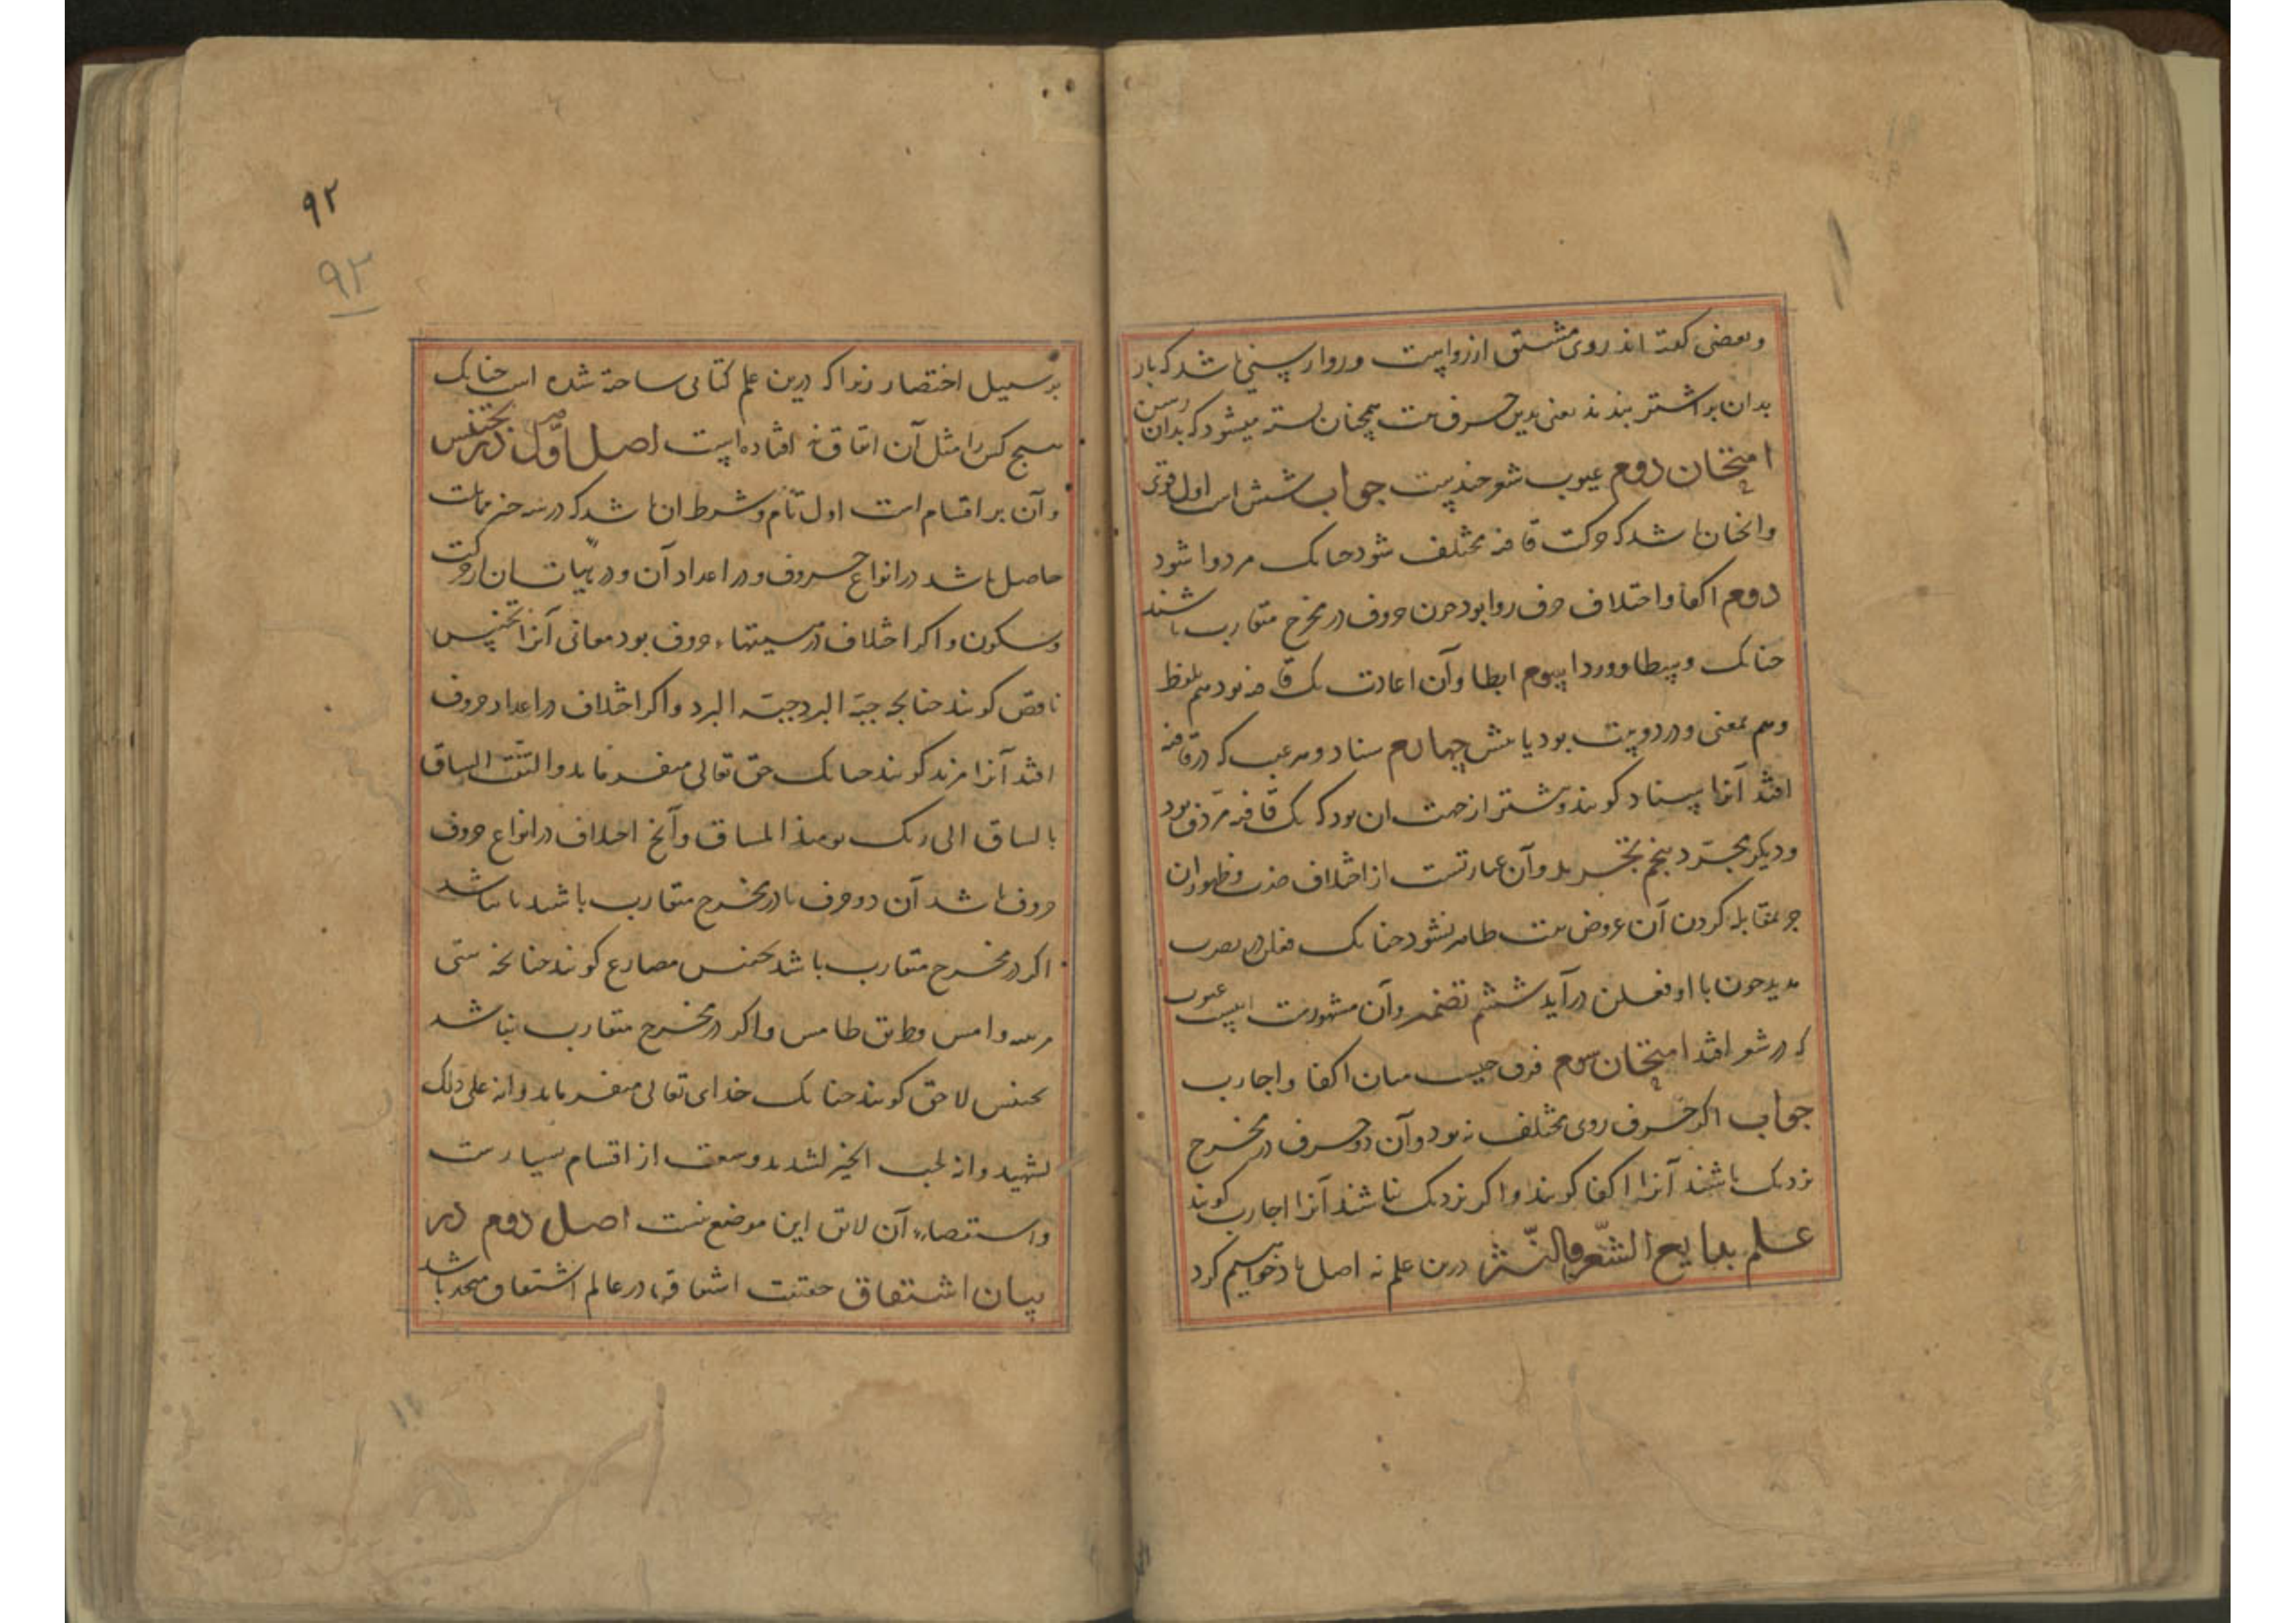 وبعضی گفته اند روی مشتق از رواست وروا رسنی باشد که بار
بدان بر اشتر بندند یعنی بدین حرف بیت همچنان بسته میشود که بدان رسن
امتحان دوم عیوب شعر چندست جواب شش است اول اقوی
وانچنان باشد که حرکت قافیه مختلف شود چنانک مردوا شود
دوم اکفا واختلاف حرف روا بود چون حروف در مخرج متقارب باشند
چنانک وسیطا ووردا سیوم ابطا وآن اعادت یک قافیه بود هم بلفظ
وهم بمعنی ودر دو بیت بود یا بیش چهارم سناد وهر عیب که در قافیه
افتد آنرا سناد گویند وبیشتر از جهت ان بود که یک قافیه مردف بود
ودیگر مجرد پنجم تجرید وآن عبارتست از اختلاف ضرب وظهور ان
جز بمقابله کردن آن عروض بیت ظاهر نشود چنانک فعلن در ضرب
مدید چون با او فعلن درآید ششم تضمین وآن مشهورست اینست عیوب
که در شعر افتد امتحان سوم فرق چیست میان اکفا واجارت
جواب اگر حرف روی مختلف بود وآن دو حرف در مخرج
نزدیک باشند آنرا اکفا گویند واگر نزدیک نباشند آنرا اجارت گویند
علم بدایع الشعر والنثر درین علم نه اصل یاد خواهیم کرد
۹۲
۹۲
بر سبیل اختصار زیرا که درین علم کتابی ساخته شده است چنانک
هیچ کس را مثل آن اتفاق نیفتاده است اصل اول در تجنیس
وآن بر اقسام است اول تام وشرط ان باشد که درسه چیز مماثلت
حاصل باشد در انواع حروف ودر اعداد آن ودر هیاتشان از حرکت
وسکون واگر اختلاف در هیئتهاء حروف بود معانی آنرا تجنیس
ناقص گویند چنانچه جبة البرد جنة البرد واگر اختلاف در اعداد حروف
افتد آنرا مزید گویند چنانک حق تعالی میفرماید والتفت الساق
بالساق الی ربک یومئذ المساق وآنچ اختلاف در انواع حروف
حروف باشد آن دو حرف یا در مخرج متقارب باشند یا نباشد
اگر در مخرج متقارب باشد تجنیس مضارع گویند چنانچه
دامس وطریق طامس واگر در مخرج متقارب نباشد
تجنیس لاحق گویند چنانک خدای تعالی میفرماید وانه علی ذلک
لشهید وانه لحب الخیر لشدید وتجنیس از اقسام بسیارست
واستقصاء آن لایق این موضع نیست اصل دوم در
بیان اشتقاق حقیقت اشتقاق در عالم اشتقاق متحد باشد